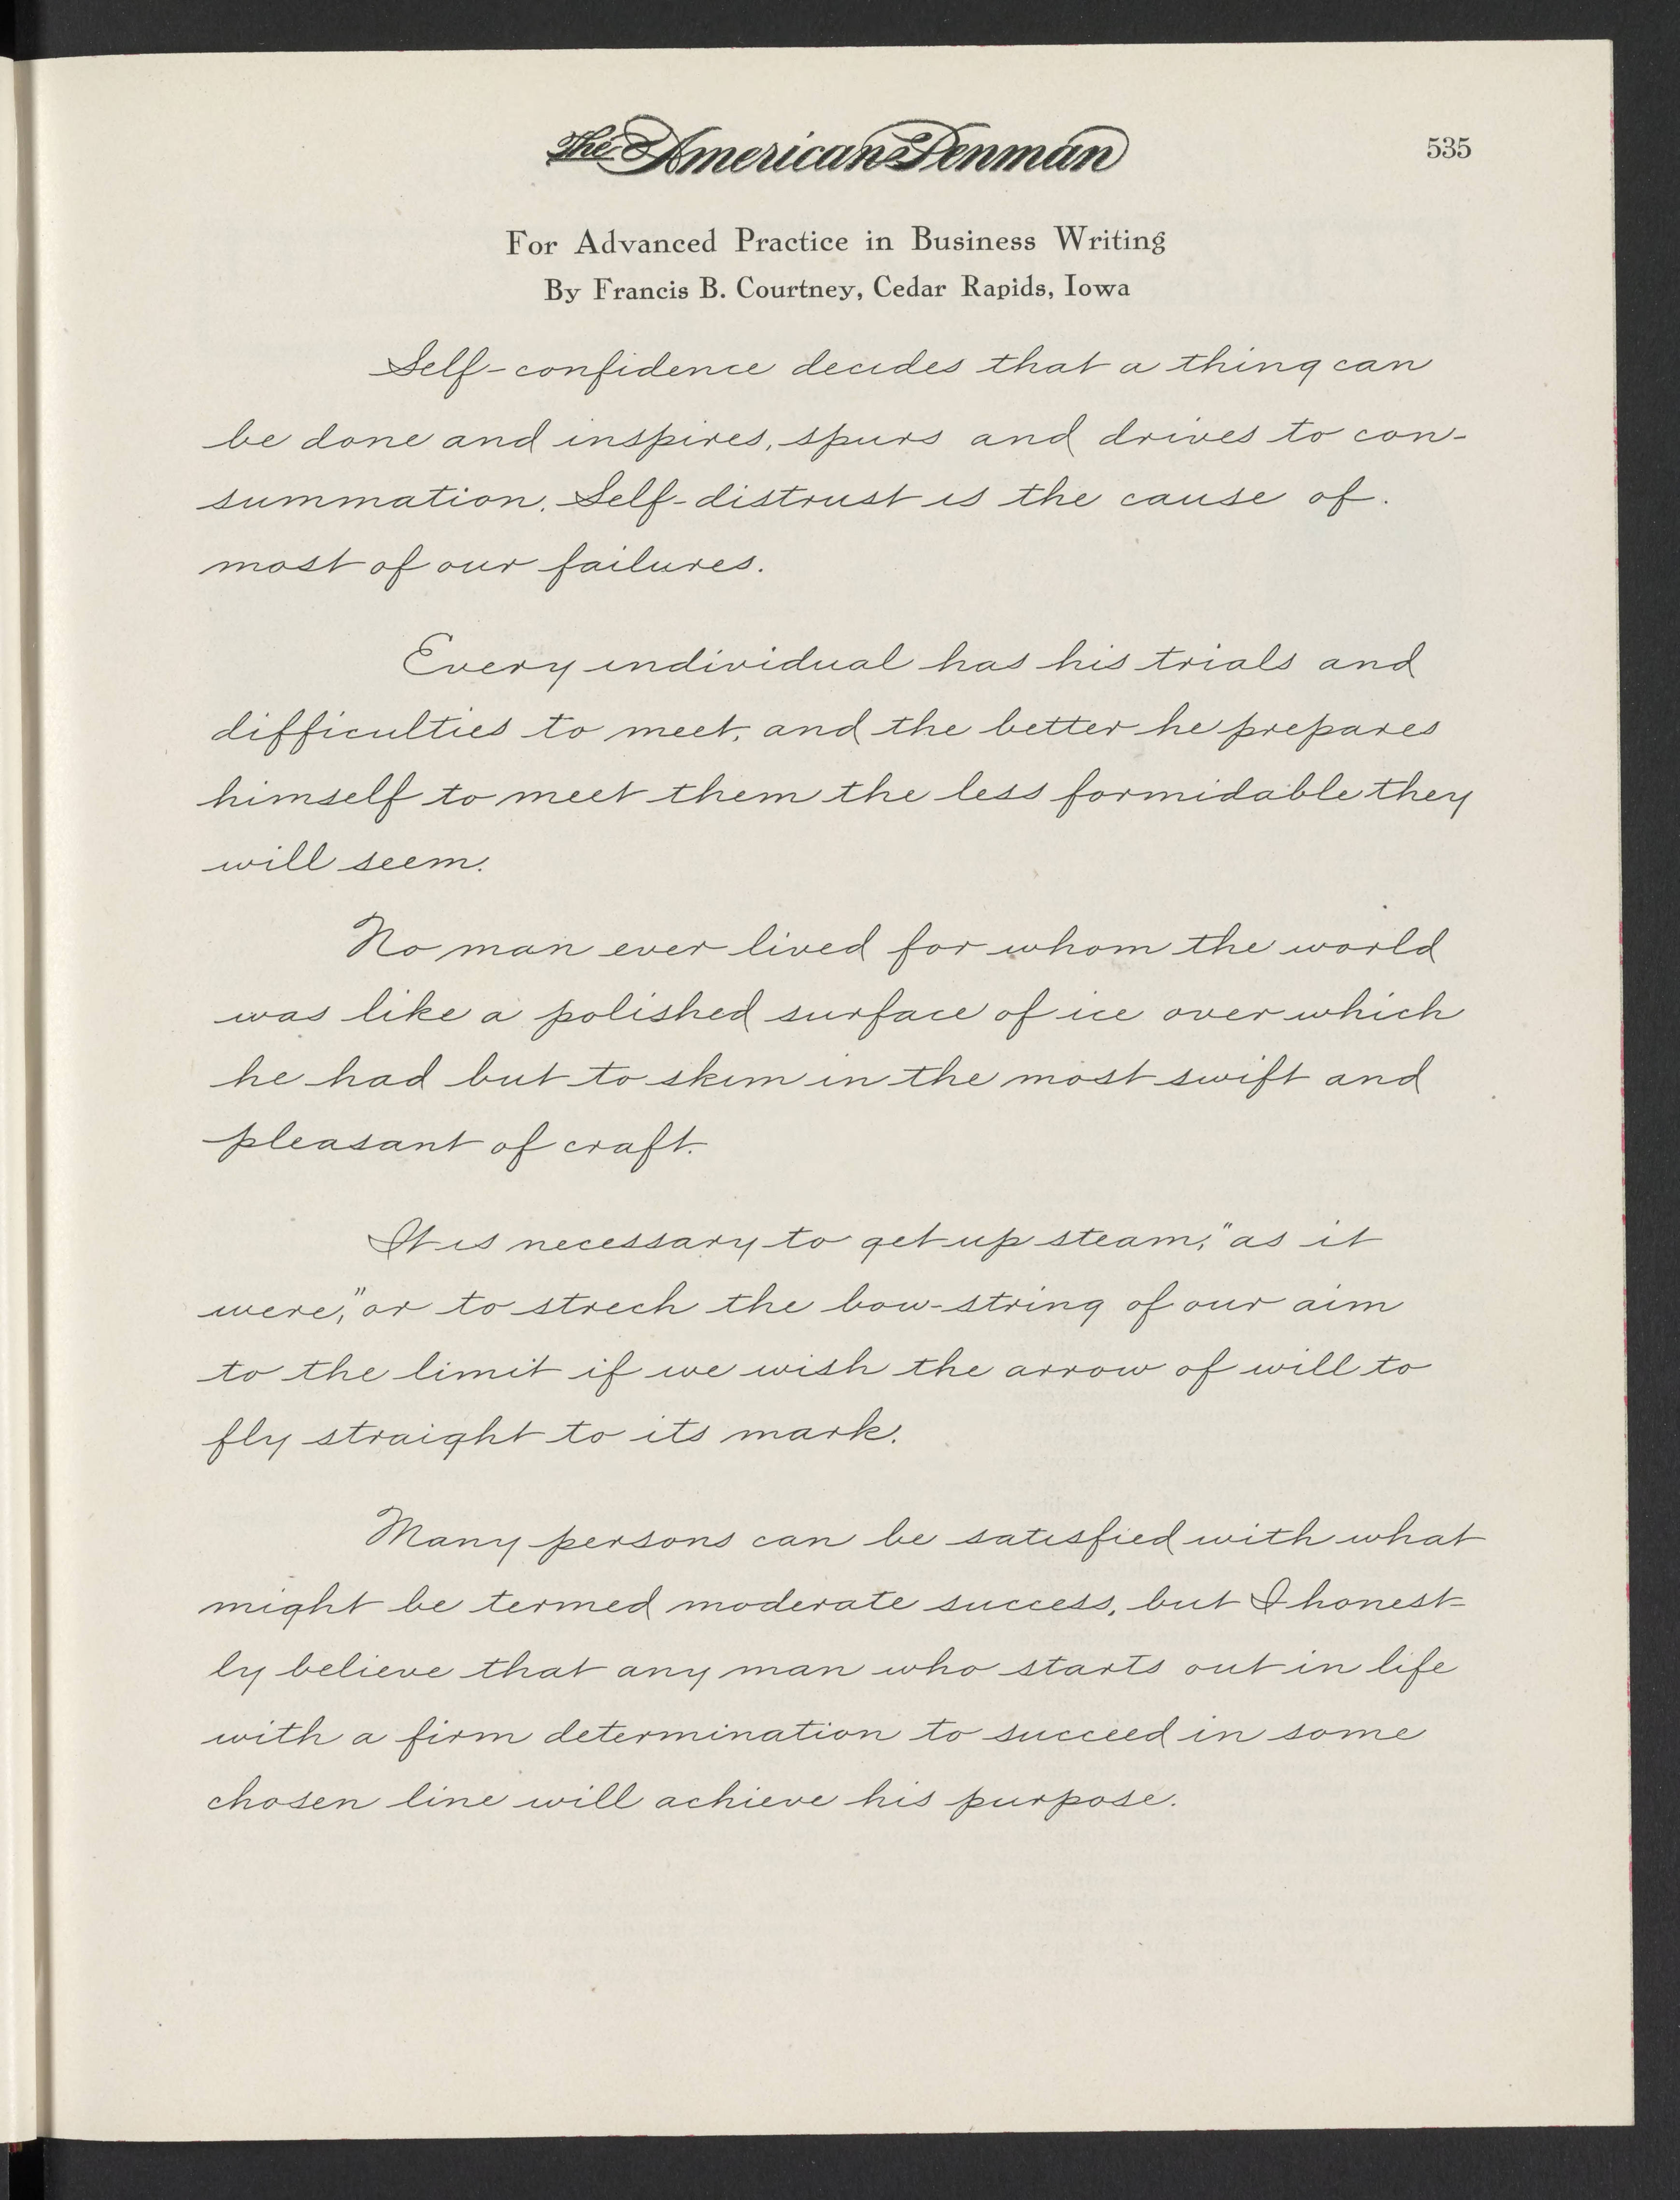 The American Penman
535
For Advanced Practice in Business Writing
By Francis B. Courtney, Cedar Rapids, Iowa
Self-confidence decides that a thing can
be done and inspires, spurs and drives to con-
summation. Self-distrust is the cause of.
most of our failures.
Every individual has his trials and
difficulties to meet, and the better he prepares
himself to meet them the less formidable they
will seem.
No man ever lived for whom the world
was like a polished surface of ice over which
he had but to skim in the most swift and
pleasant of craft.
It is necessary to get up steam, "as it
were," or to strech the bow-string of our aim
to the limit if we wish the arrow of will to
fly straight to its mark.
Many persons can be satisfied with what
might be termed moderate success, but I honest-
ly believe that any man who starts out in life
with a firm determination to succeed in some
chosen line will achieve his purpose.